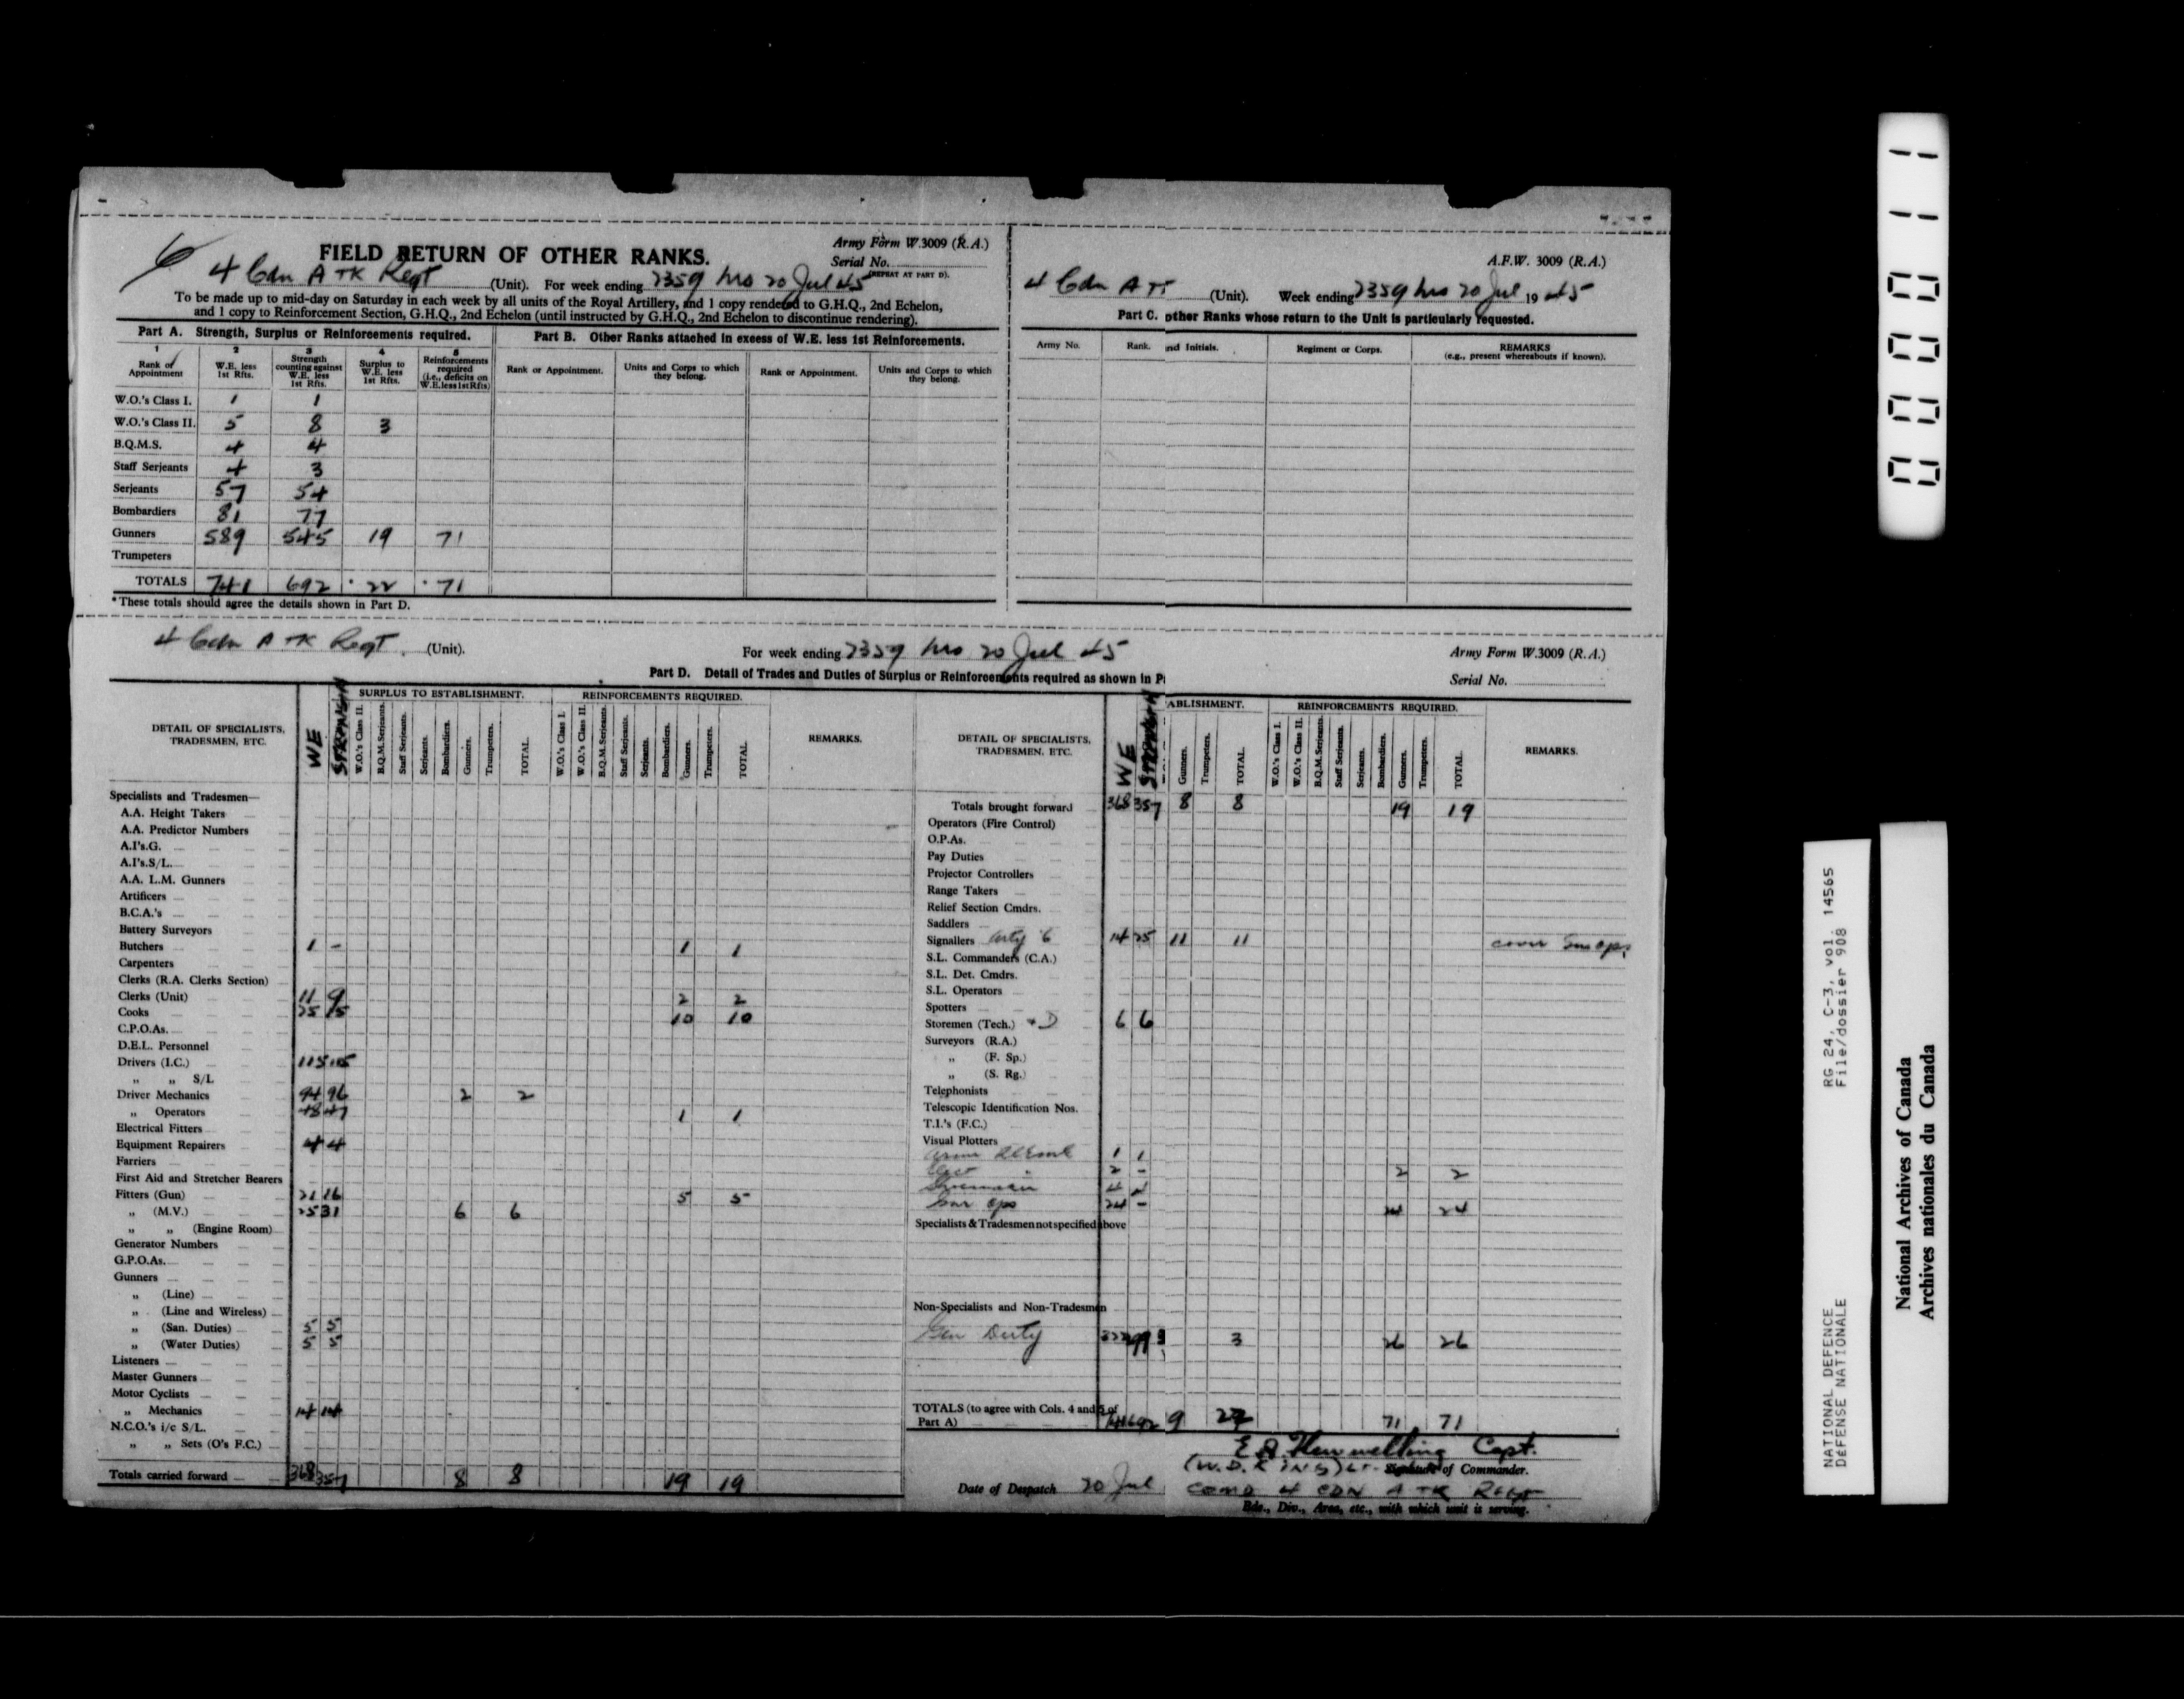 FIELD RETURN OF OTHER RANKS.
Army Form W.3009 (R.A.)
Serial No.
(REPEAT AT PART D).
4 Cdn A TK Regt (Unit). For week ending 2359 hrs 20 Jul 45
To be made up to mid-day on Saturday in each week by all units of the Royal Artillery, and 1 copy rendered to G.H.Q., 2nd Echelon,
and 1 copy to Reinforcement Section, G.H.Q., 2nd Echelon (until instructed by G.H.Q., 2nd Echelon to discontinue rendering).
Part A. Strength, Surplus or Reinforcements required.
1 Rank or Appointment
2 W.E. less 1st Rfts.
3 Strength counting against W.E. less 1st Rfts.
4 Surplus to W.E. less 1st Rfts.
5 Reinforcements required (i.e., deficits on W.E. less 1st Rfts)
W.O.'s Class I. 1 1
W.O.'s Class II. 5 8 3
B.Q.M.S. 4 4
Staff Serjeants 4 3
Serjeants 57 54
Bombardiers 81 77
Gunners 589 545 19 71
Trumpeters
TOTALS 741 692 * 22 * 71
* These totals should agree the details shown in Part D.
Part B. Other Ranks attached in excess of W.E. less 1st Reinforcements.
Rank or Appointment. Units and Corps to which they belong. Rank or Appointment. Units and Corps to which they belong.
A.F.W. 3009 (R.A.)
4 Cdn A T (Unit). Week ending 2359 hrs 20 Jul 1945
Part C. other Ranks whose return to the Unit is particularly requested.
Army No. Rank. nd Initials. Regiment or Corps. REMARKS (e.g., present whereabouts if known).
4 Cdn A TK Regt. (Unit).
For week ending 2359 hrs 20 Jul 45
Army Form W.3009 (R.A.)
Serial No.
Part D. Detail of Trades and Duties of Surplus or Reinforcements required as shown in P
DETAIL OF SPECIALISTS, TRADESMEN, ETC.
WE
STRENGTH
SURPLUS TO ESTABLISHMENT.
W.O.'s Class II. B.Q.M. Serjeants. Staff Serjeants. Serjeants. Bombardiers. Gunners. Trumpeters. TOTAL.
REINFORCEMENTS REQUIRED.
W.O.'s Class I. W.O.'s Class II. B.Q.M. Serjeants. Staff Serjeants. Serjeants. Bombardiers. Gunners. Trumpeters. TOTAL
REMARKS.
Specialists and Tradesmen—
A.A. Height Takers
A.A. Predictor Numbers
A.I's.G.
A.I's.S/L.
A.A. L.M. Gunners
Artificers
B.C.A.'s
Battery Surveyors
Butchers 1 - 1 1
Carpenters
Clerks (R.A. Clerks Section)
Clerks (Unit) 11 9 2 2
Cooks 25 15 10 10
C.P.O.As.
D.E.L. Personnel
Drivers (I.C.) 115 105
„ „ S/L
Driver Mechanics 94 96 2 2
„ Operators 48 47 1 1
Electrical Fitters
Equipment Repairers 4 4
Farriers
First Aid and Stretcher Bearers
Fitters (Gun) 21 16 5 5
„ (M.V.) 25 31 6 6
„ „ (Engine Room)
Generator Numbers
G.P.O.As.
Gunners
„ (Line)
„ (Line and Wireless)
„ (San. Duties) 5 5
„ (Water Duties) 5 5
Listeners
Master Gunners
Motor Cyclists
„ Mechanics 14 14
N.C.O.'s i/c S/L.
„ „ Sets (O's F.C.)
Totals carried forward 368 357 8 8 19 19
DETAIL OF SPECIALISTS, TRADESMEN, ETC.
WE
STRENGTH
ABLISHMENT.
Gunners. Trumpeters. TOTAL.
REINFORCEMENTS REQUIRED.
W.O.'s Class I. W.O.'s Class II. B.Q.M. Serjeants. Staff Serjeants. Serjeants. Bombardiers. Gunners. Trumpeters. TOTAL
REMARKS.
Totals brought forward 368 357 8 8 19 19
Operators (Fire Control)
O.P.As.
Pay Duties
Projector Controllers
Range Takers
Relief Section Cmdrs.
Saddlers
Signallers Arty 14 25 11 11 cover
S.L. Commanders (C.A.)
S.L. Det. Cmdrs.
S.L. Operators
Spotters
Storemen (Tech.) + D 6 6
Surveyors (R.A.)
„ (F. Sp.)
„ (S. Rg.)
Telephonists
Telescopic Identification Nos.
T.I.'s (F.C.)
Visual Plotters
1 1
2 - 2 2
4 4
ops 24 - 24 24
Specialists & Tradesmen not specified above
Non-Specialists and Non-Tradesmen
Gen Duty 322 299 3 3 26 26
TOTALS (to agree with Cols. 4 and 5 of Part A) 741 692 9 22 71 71
Capt.
(W.D. KING) Lt- Signature of Commander.
Date of Despatch 20 Jul
COMD 4 CDN A TK REGT
Bde., Div., Area, etc., with which unit is serving.
000011
RG 24, C-3, vol. 14565
File/dossier 908
NATIONAL DEFENCE
DEFENSE NATIONALE
National Archives of Canada
Archives nationales du Canada